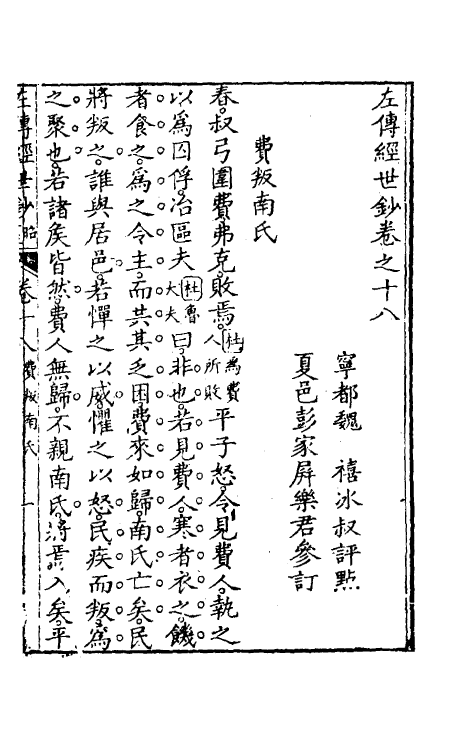 左傳經世鈔卷之十八
寧都魏　禧冰叔評點
夏邑彭家屏樂君參訂
費叛南氏
春叔弓圍費弗克敗焉杜為費人所敗平子怒令見費人執之
以為囚俘冶區夫杜魯大夫曰非也若見費人寒者衣之饑
者食之為之令主而共其乏困費來如歸南氏亡矣民
將叛之誰與居邑若憚之以威懼之以怒民疾而叛為
之聚也若諸矦皆然費人無歸不親南氏將焉入矣平
左傳經世鈔　昭　卷十八　費叛南氏　一